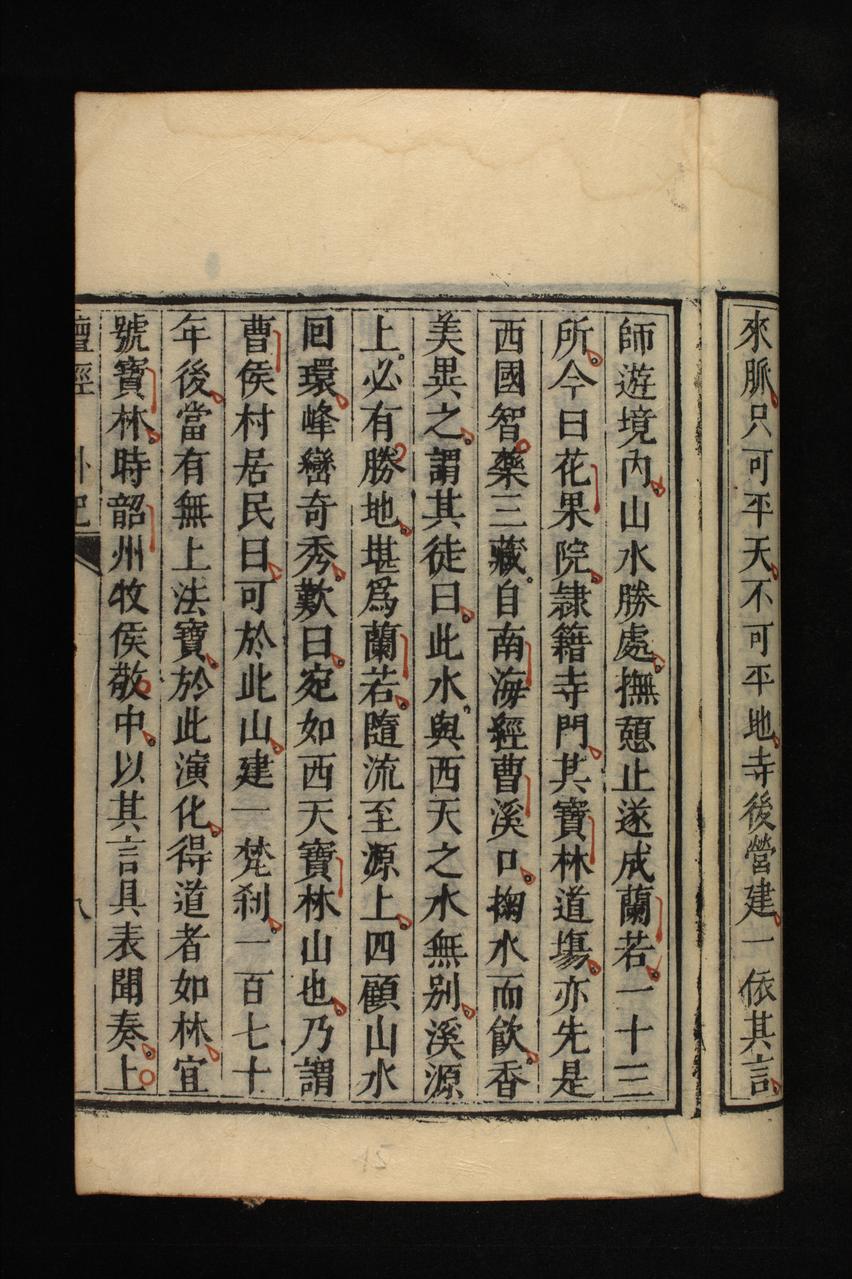 來脈只可平天不可平地寺後營建一依其言
師遊境內山水勝處輙憩止遂成蘭若一十三
所今曰花果院隷籍寺門其寶林道塲亦先是
西國智藥三藏自南海經曹溪口掬水而飲香
美異之謂其徒曰此水與西天之水無别溪源
上必有勝地堪爲蘭若隨流至源上四顧山水
回環峰巒奇秀歎曰宛如西天寶林山也乃謂
曹侯村居民曰可於此山建一梵刹一百七十
年後當有無上法寶於此演化得道者如林宜
號寶林時韶州牧侯敬中以其言具表聞奏上
壇經 卜記 八